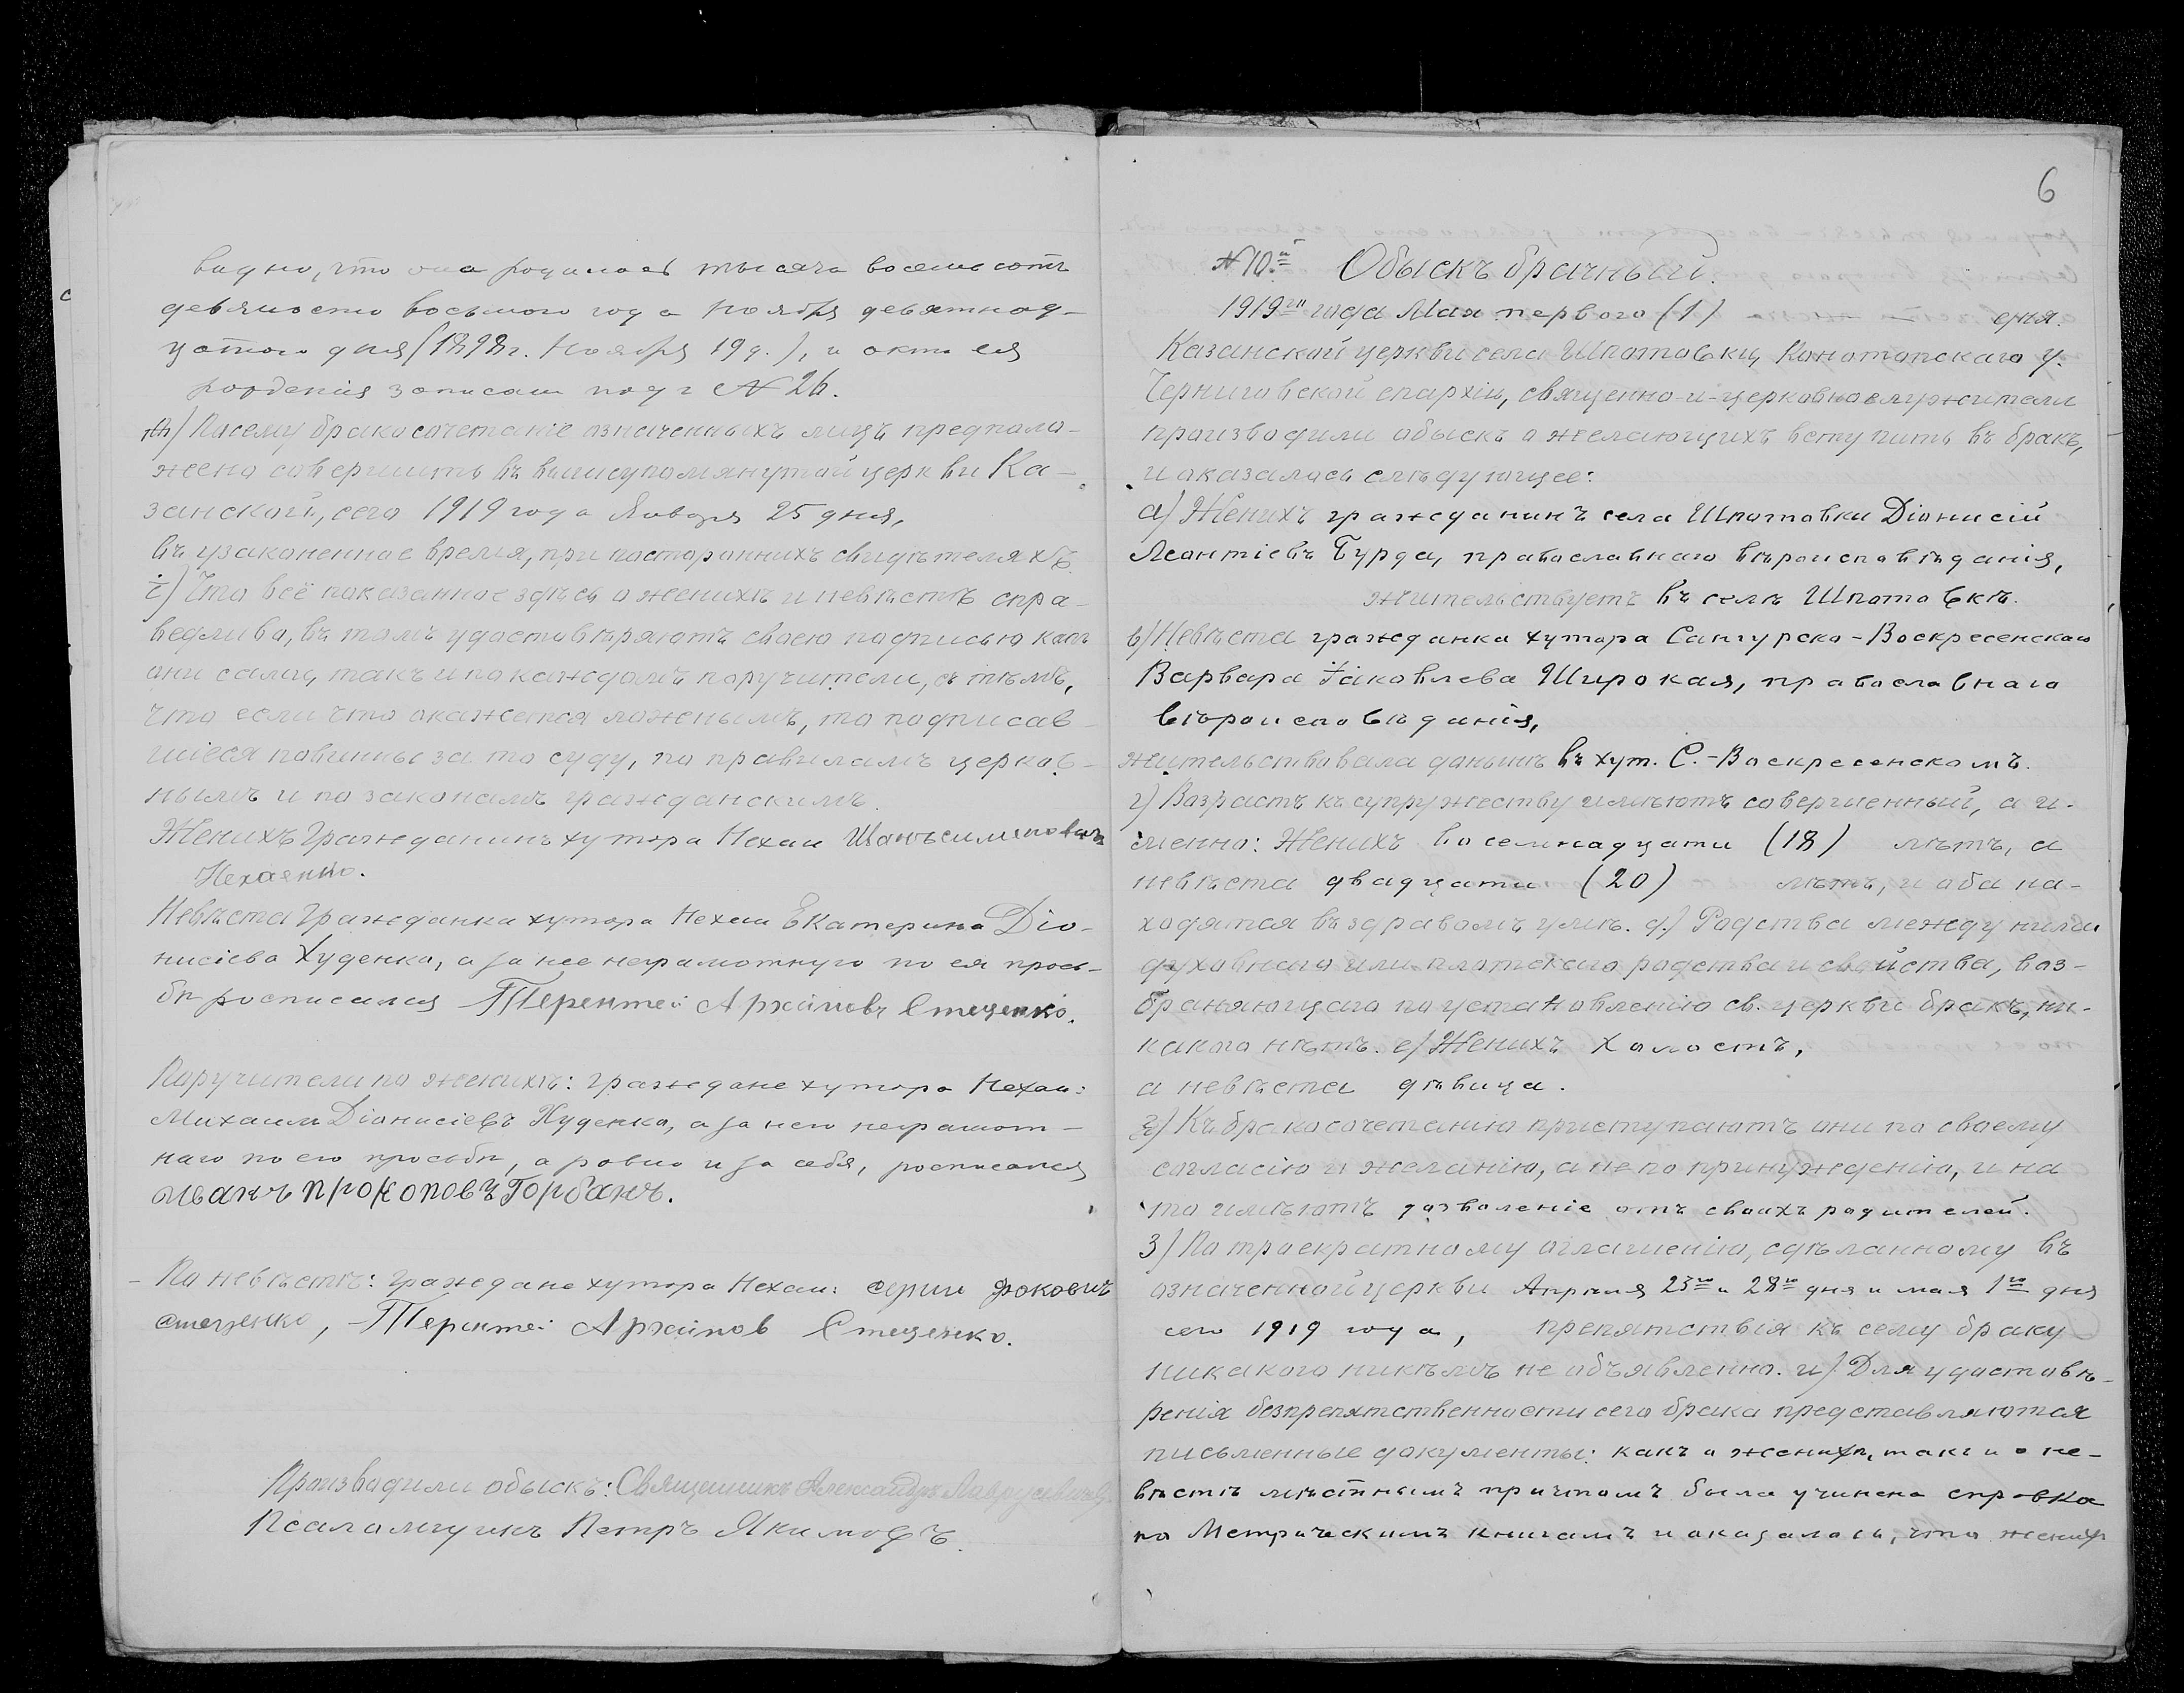 видно, что она родилась тысяча восемьсотъ
девяносто восьмого года Ноября девятнад-
цатого дня (1898 г. Ноября 19 д.), и актъ ея
рожденія записанъ подъ № 26.
Посему бракосочетаніе означенныхъ лицъ предполо-
жено совершить въ вышеупомянутой церкви Ка-
занской, сего 1919 года Января 25 дня,
въ узаконенное время, при постороннихъ свидѣтеляхъ.
і) Что всё показанное здѣсь о женихѣ и невѣстѣ спра-
ведливо, въ томъ удостовѣряютъ своею подписью какъ
они сами, такъ и по каждомъ поручители, съ тѣмъ,
что если что окажется ложнымъ, то подписав-
шіеся повинны за то суду, по правиламъ церков-
нымъ и по законамъ гражданскимъ.
Женихъ Гражданинъ хутора Нехаи
Нехаенко.
Невѣста Гражданка хутора Нехаи Екатерина Діо-
нисіева Худенко, а за нее неграмотную по ея прось-
бѣ росписался Терентей Архиповъ Стеценко.
Поручители по женихѣ: граждане хутора Нехаи:
Михаилъ Діонисіевъ Худенко, а за него неграмот-
наго по его просьбѣ, а ровно и за себя, росписался
Иванъ Прокоповъ Горбанъ.
- По невѣстѣ: Граждане хутора Нехаи:
стеценко, Терентей Архипов Стеценко.
Производили обыскъ: Священникъ Александръ
Псаломщикъ Петръ Якимовъ.
6
№ 10.й Обыскъ брачный.
1919го года Мая перваго (1) — дня.
Казанской церкви села Шпотовки, Конотопскаго у.
Черниговской епархіи, священно-и-церковнослужители
производили обыскъ о желающихъ вступить въ бракъ,
и оказалось слѣдующее:
а) Женихъ гражданинъ села Шпотовки Діонисій
Леонтіевъ Бурда, православнаго вѣроисповѣданія,
жительствуетъ въ селѣ Шпотовкѣ.
в) Невѣста гражданка хутора Сангурско-Воскресенскаго
Варвара Іаковлева Широкая, православнаго
вѣроисповѣданія,
жительствовала донынѣ въ хут. С.-Воскресенскомъ.
г) Возрастъ къ супружеству имѣютъ совершенный, а и-
менно: Женихъ восемнадцати (18) лѣтъ, а
невѣста двадцати (20) лѣтъ, и оба на-
ходятся въ здравомъ умѣ. д) Родства между ними
духовнаго или плотскаго родства и свойства, воз-
браняющаго по установленію св. церкви бракъ, ни-
какого нѣтъ. е) Женихъ холостъ,
а невѣста дѣвица.
Къ бракосочетанію приступаютъ они по своему
согласію и желанію, а не по принужденію, и на
то имѣютъ дозволеніе отъ своихъ родителей.
з) По троекратному оглашенію, сдѣланному въ
означенной церкви Апрѣля 23го и 28го дня и мая 1го дня
сего 1919 года, препятствія къ сему браку
никакого никѣмъ не объявлено. и) Для удостовѣ-
ренія безпрепятственности сего брака представляются
письменные документы: какъ о женихѣ, такъ и о не-
вѣстѣ мѣстнымъ причтомъ была учинена справка
по Метрическимъ книгамъ и оказалось, что женихъ